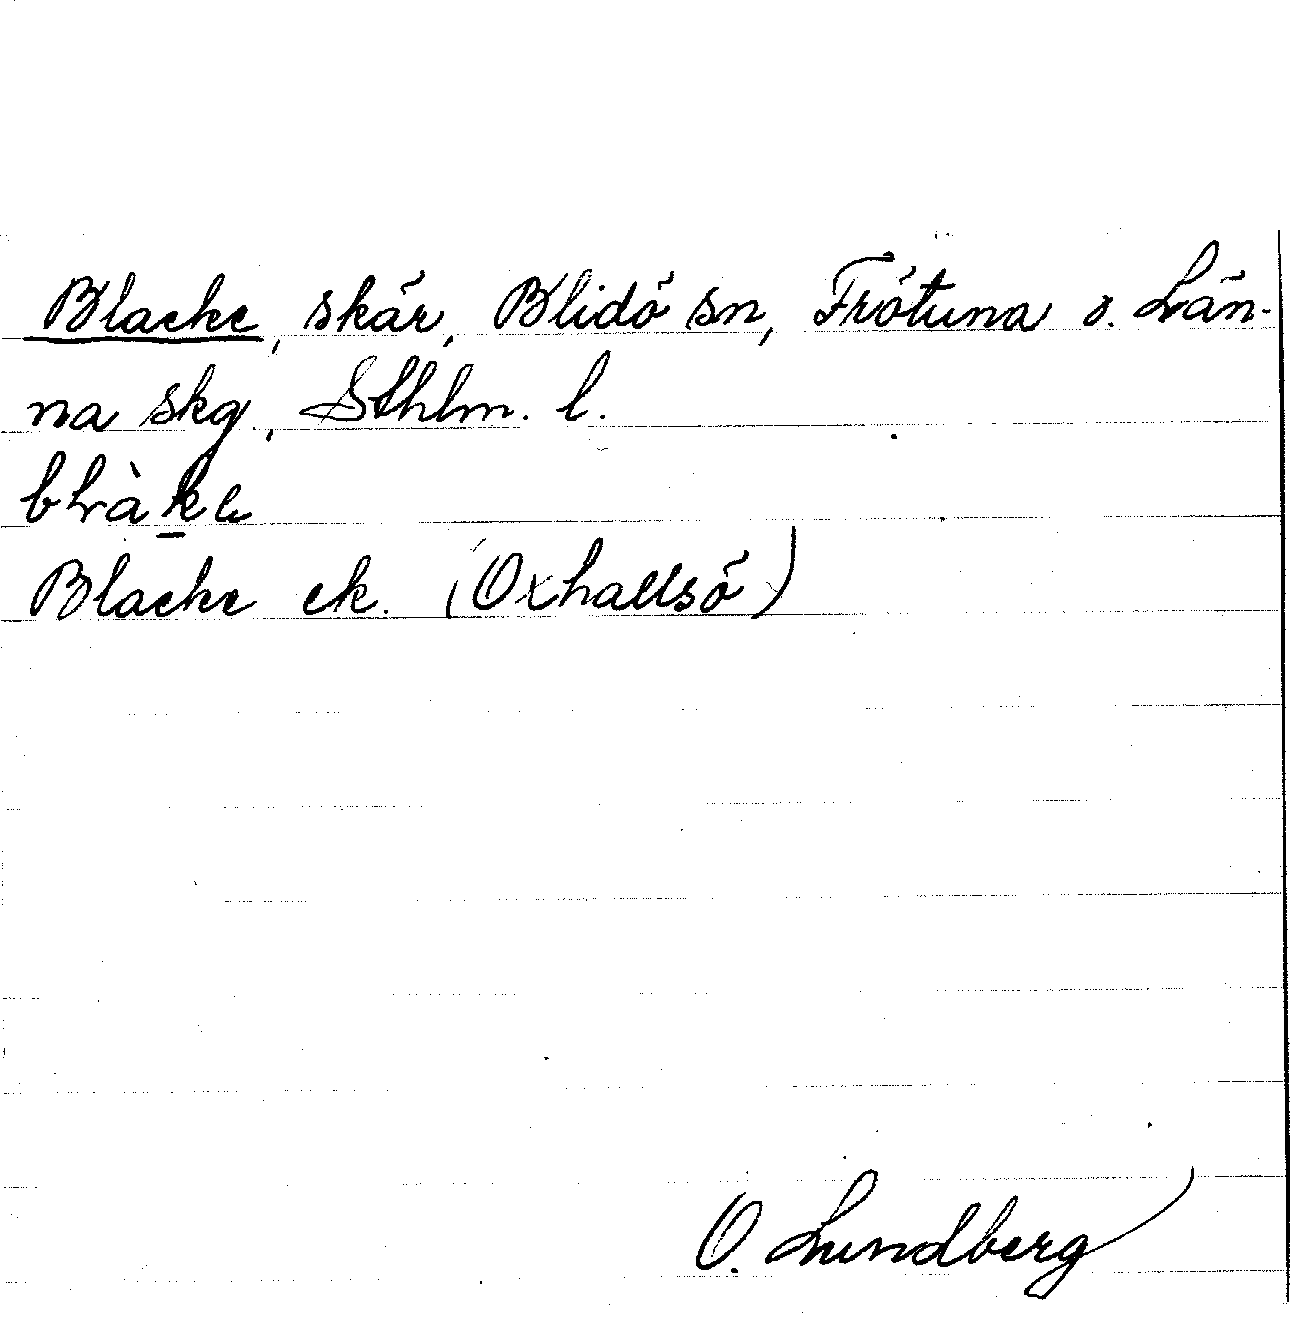 Blacke, skär, Blidö sn, Frötuna o. Län-
na skg, Sthlm. l.
blràke
Blacke ek. (Oxhallsö)
O. Lundberg